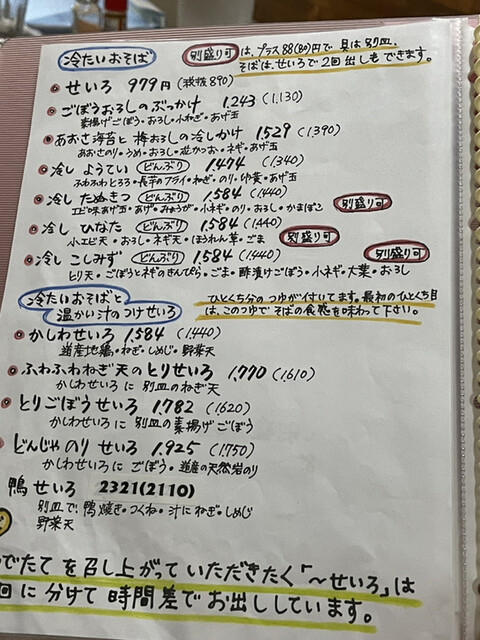 冷たいおそば
別盛り可は、プラス88(80)円で具は別皿、
そばは、せいろで2回出しもできます。
せいろ 979円 (税抜890)
ごぼうおろしのぶっかけ 1,243 (1,130)
素揚げごぼう・おろし・小ねぎ・あげ玉
あおさ海苔と梅おろしの冷しかけ 1,529 (1,390)
あおさのり・うめ・おろし・花かつお・ネギ・あげ玉
冷し ようてい どんぶり 1,474 (1,340)
ふわふわとろろ・長芋のフライ・ねぎ・のり・卵黄・あげ玉
冷し たぬきつ どんぶり 1,584 (1,440)
エビ味あげ玉・あげ・みょうが・小ネギ・のり・おろし・かまぼこ 別盛り可
冷し ひなた どんぶり 1,584 (1,440)
小エビ天・おろし・ネギ天・ほうれん草・ごま 別盛り可
冷し こしみず どんぶり 1,584 (1,440) 別盛り可
とり天・ごぼうとネギのきんぴら・ごま・酢漬けごぼう・小ネギ・大葉・おろし
冷たいおそばと
温かい汁のつけせいろ
ひとくち分のつゆが付いてます。最初のひとくち目
は、このつゆでそばの食感を味わって下さい。
かしわせいろ 1,584 (1,440)
道産地鶏・ねぎ・しめじ・野菜天
ふわふわねぎ天のとりせいろ 1,770 (1,610)
かしわせいろに 別皿のねぎ天
とりごぼうせいろ 1,782 (1,620)
かしわせいろに 別皿の素揚げごぼう
どんじゃのり せいろ 1,925 (1,750)
かしわせいろに ごぼう・道産の天然岩のり
鴨せいろ 2321(2110)
別皿で、鴨焼き・つくね・汁にねぎ・しめじ
野菜天
でたてを召し上がっていただきたく「〜せいろ」は
回に分けて時間差でお出ししています。